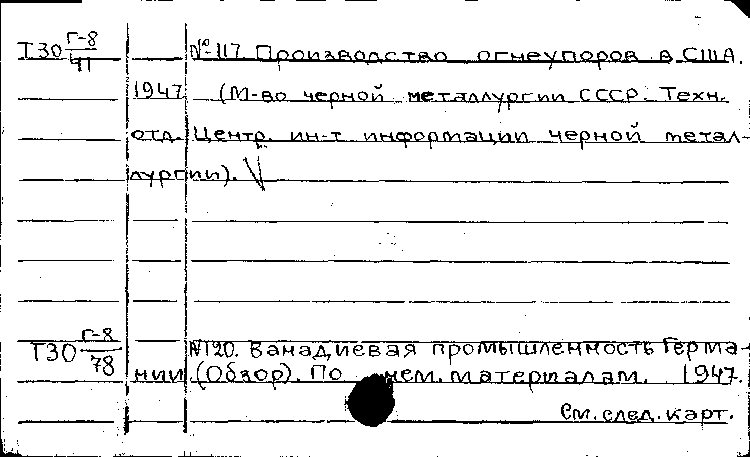 Т30 Г-8/41 №-117 Производство огнеупоров в США.
1947 (М-во черной металлургии СССР. Техн.
отд. Центр. ин-т информации черной метал-
лургии). V
Т30 Г-8/78 №120. Ванадиевая промышленность Герма-
нии. (Обзор). По нем. материалам. 1947.
См. след. карт.